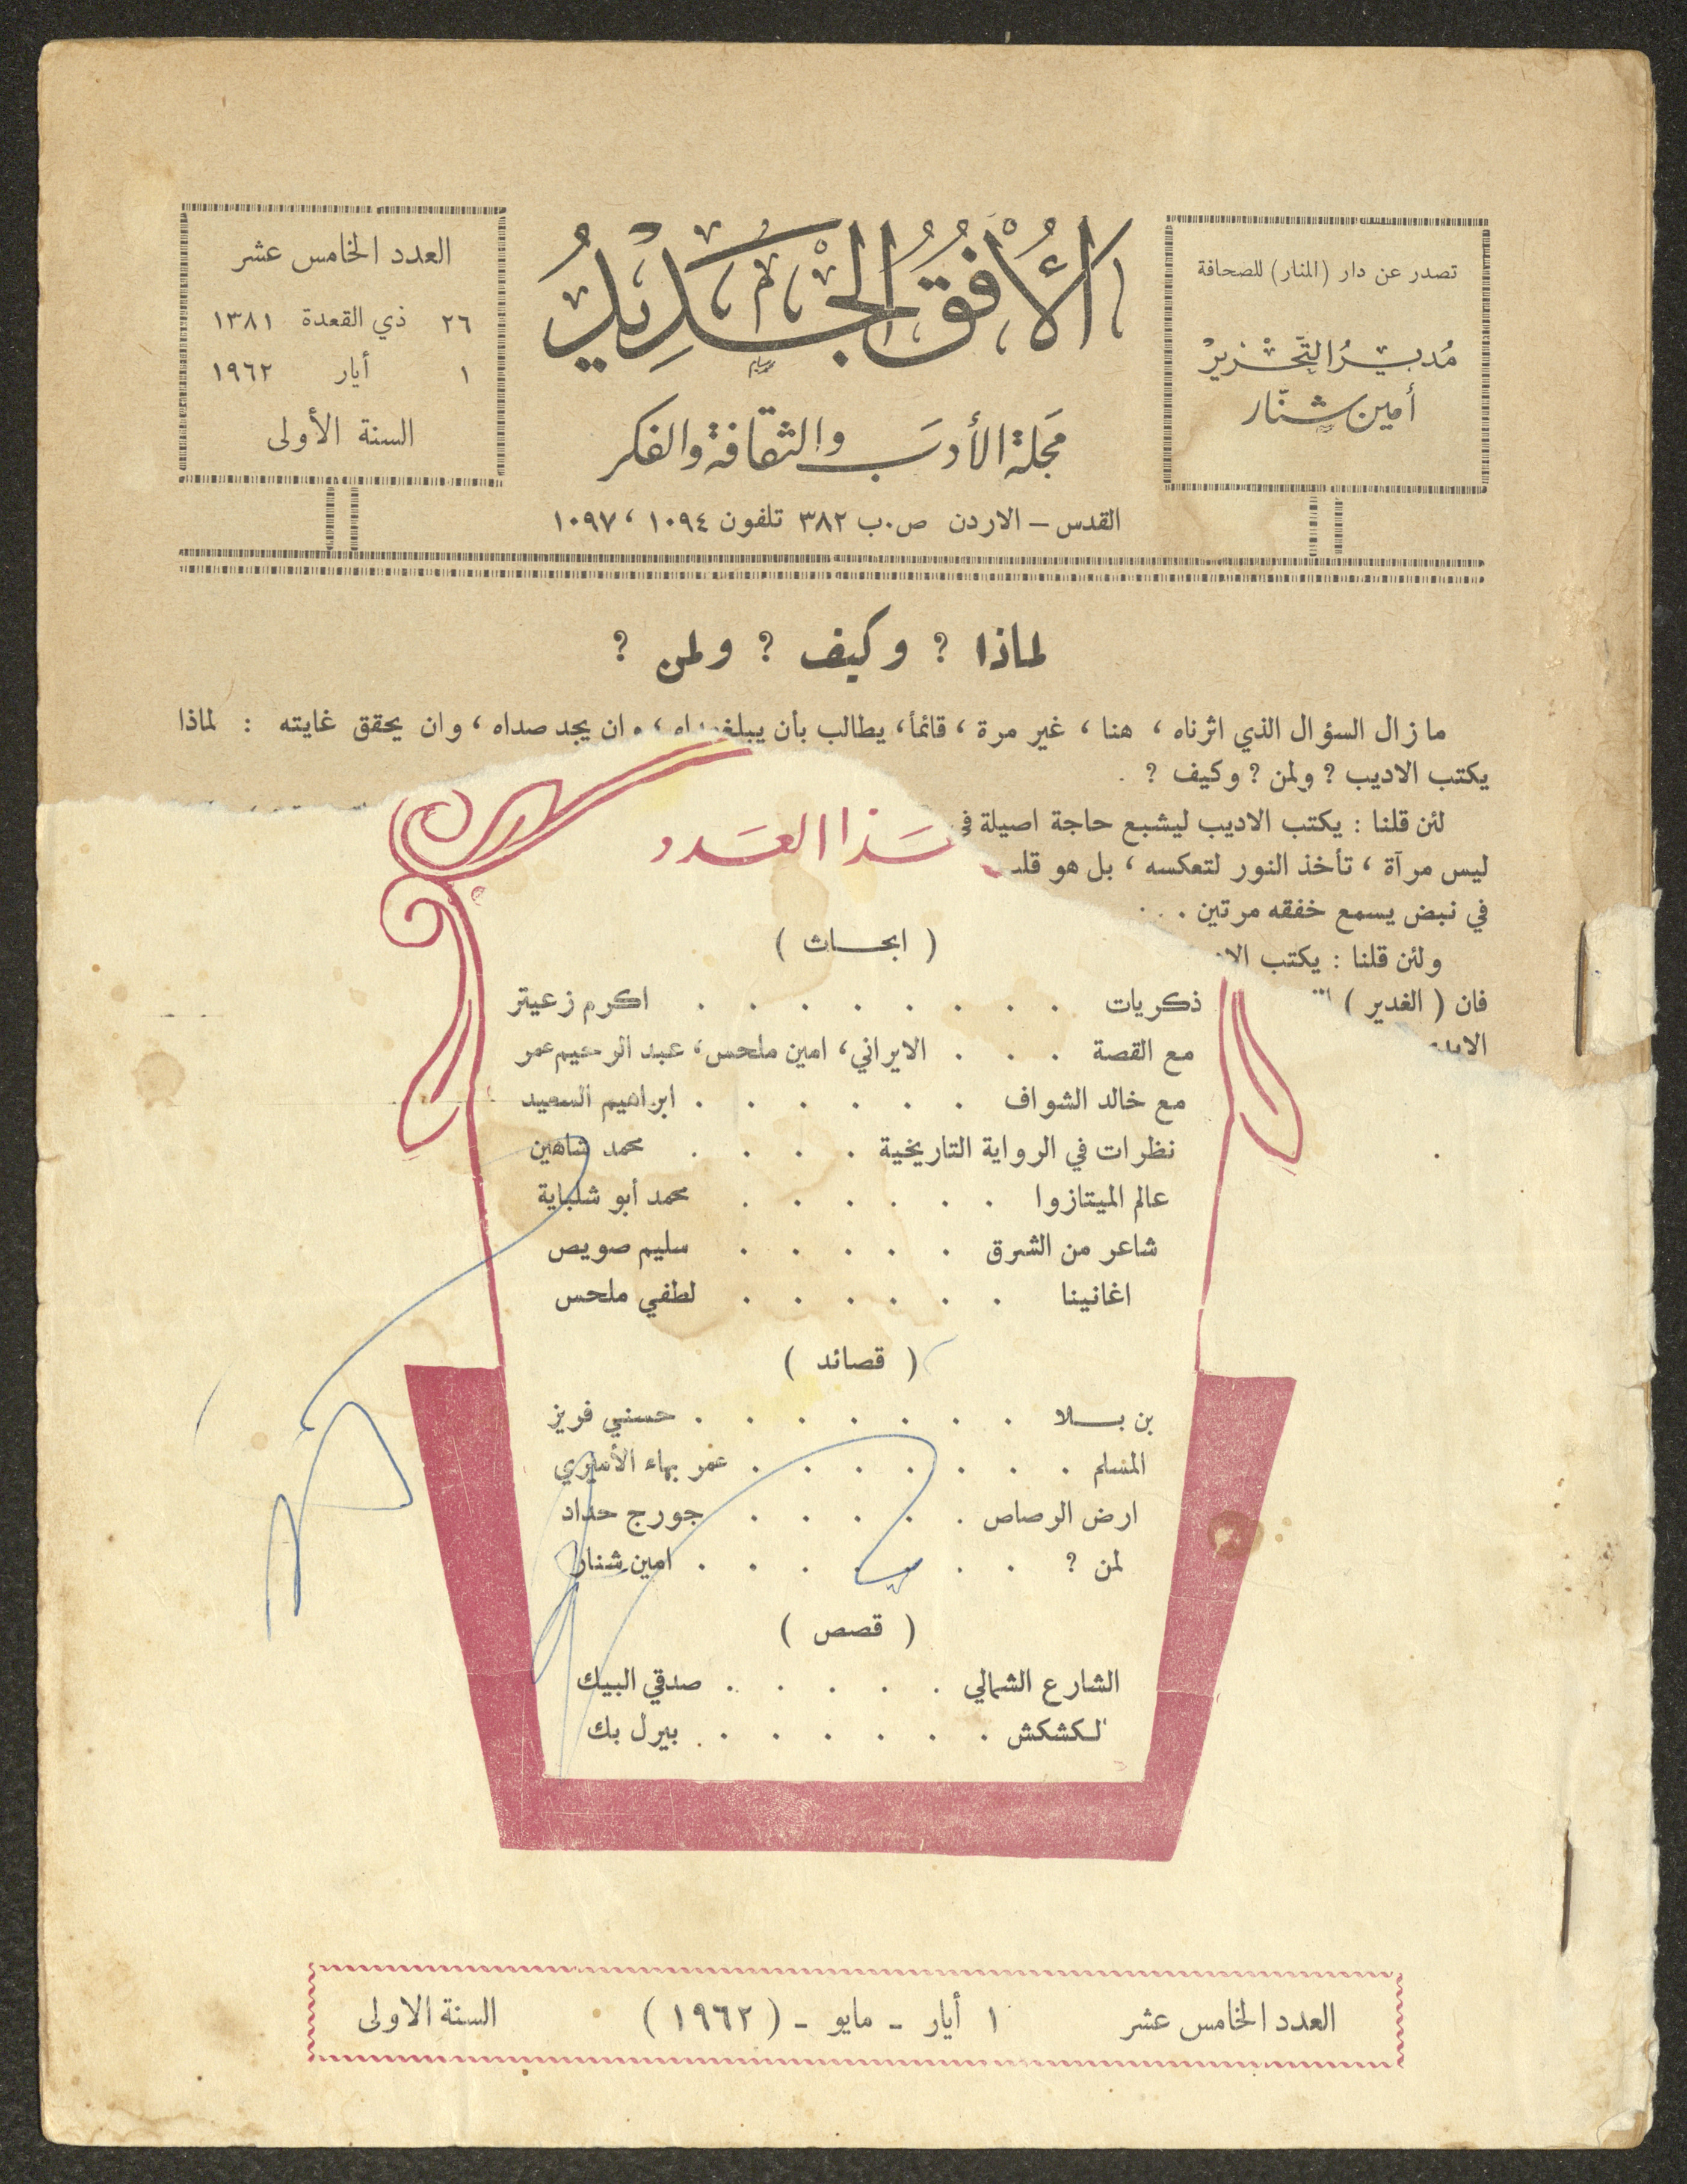 تصدر عن دار (المنار) للصحافة
مُديرُ التَّحْريرْ
أمين شنّار
الأُفُقُ الجَدِيدُ
مَجلة الأدبَ والثقافة والفكر
القدس – الاردن ص.ب ٣٨٢ تلفون ١٠٩٤ ، ١٠٩٧
العدد الخامس عشر
٢٦ ذي القعدة ١٣٨١
١ أيار ١٩٦٢
السنة الأولى
لماذا ? وكيف ? ولمن ?
ما زال السؤال الذي اثرناه ، هنا ، غير مرة ، قائماً ، يطالب بأن يبلغ ، وان يجد صداه ، وان يحقق غايته : لماذا
يكتب الاديب ? ولمن ? وكيف ? .
لئن قلنا : يكتب الاديب ليشبع حاجة اصيلة في
ليس مرآة ، تأخذ النور لتعكسه ، بل هو
في نبض يسمع خفقه مرتين . . .
ولئن قلنا : يكتب
فان ( الغدير )
العَدد
( ابحاث )
ذكريات . . . . . . . . اكرم زعيتر
مع القصة . . . الايراني، امين ملحس، عبد الرحيم عمر
مع خالد الشواف . . . . . . ابراهيم السعيد
نظرات في الرواية التاريخية . . . . محمد شاهين
عالم الميتازوا . . . . . . محمد أبو شلباية
شاعر من الشرق . . . . . سليم صويص
اغانينا . . . . . . لطفي ملحس
( قصائد )
بن بلا . . . . . . . حسني فريز
المسلم . . . . . . . عمر بهاء الأميري
ارض الرصاص . . . . . جورج حداد
لمن ? . . . . . . . امين شنار
( قصص )
الشارع الشمالي . . . . . صدقي البيك
لكشكش . . . . . . . بيرل بك
العدد الخامس عشر
١ أيار - مايو - ( ١٩٦٢ )
السنة الاولى